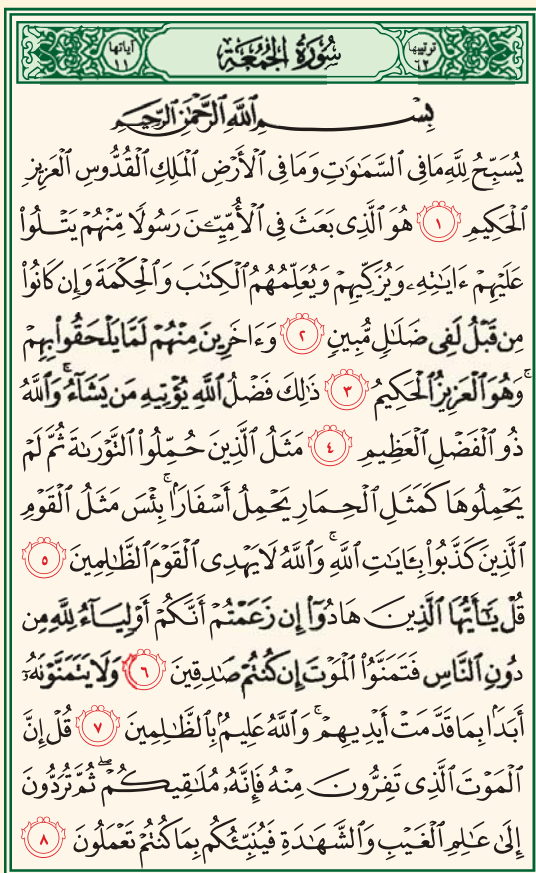 ترتيبها ٦٢ سُورَةُ الجُمُعَةِ آياتها ١١
بِسْمِ ٱللَّهِ ٱلرَّحْمَٰنِ ٱلرَّحِيمِ
يُسَبِّحُ لِلَّهِ مَا فِى ٱلسَّمَٰوَٰتِ وَمَا فِى ٱلْأَرْضِ ٱلْمَلِكِ ٱلْقُدُّوسِ ٱلْعَزِيزِ
ٱلْحَكِيمِ ١ هُوَ ٱلَّذِى بَعَثَ فِى ٱلْأُمِّيِّۦنَ رَسُولًا مِّنْهُمْ يَتْلُوا۟
عَلَيْهِمْ ءَايَٰتِهِۦ وَيُزَكِّيهِمْ وَيُعَلِّمُهُمُ ٱلْكِتَٰبَ وَٱلْحِكْمَةَ وَإِن كَانُوا۟
مِن قَبْلُ لَفِى ضَلَٰلٍ مُّبِينٍ ٢ وَءَاخَرِينَ مِنْهُمْ لَمَّا يَلْحَقُوا۟ بِهِمْ
ۚ وَهُوَ ٱلْعَزِيزُ ٱلْحَكِيمُ ٣ ذَٰلِكَ فَضْلُ ٱللَّهِ يُؤْتِيهِ مَن يَشَآءُ ۚ وَٱللَّهُ
ذُو ٱلْفَضْلِ ٱلْعَظِيمِ ٤ مَثَلُ ٱلَّذِينَ حُمِّلُوا۟ ٱلتَّوْرَىٰةَ ثُمَّ لَمْ
يَحْمِلُوهَا كَمَثَلِ ٱلْحِمَارِ يَحْمِلُ أَسْفَارًۢا ۚ بِئْسَ مَثَلُ ٱلْقَوْمِ
ٱلَّذِينَ كَذَّبُوا۟ بِـَٔايَٰتِ ٱللَّهِ ۚ وَٱللَّهُ لَا يَهْدِى ٱلْقَوْمَ ٱلظَّٰلِمِينَ ٥
قُلْ يَٰٓأَيُّهَا ٱلَّذِينَ هَادُوٓا۟ إِن زَعَمْتُمْ أَنَّكُمْ أَوْلِيَآءُ لِلَّهِ مِن
دُونِ ٱلنَّاسِ فَتَمَنَّوُا۟ ٱلْمَوْتَ إِن كُنتُمْ صَٰدِقِينَ ٦ وَلَا يَتَمَنَّوْنَهُۥٓ
أَبَدًۢا بِمَا قَدَّمَتْ أَيْدِيهِمْ ۚ وَٱللَّهُ عَلِيمٌۢ بِٱلظَّٰلِمِينَ ٧ قُلْ إِنَّ
ٱلْمَوْتَ ٱلَّذِى تَفِرُّونَ مِنْهُ فَإِنَّهُۥ مُلَٰقِيكُمْ ۖ ثُمَّ تُرَدُّونَ
إِلَىٰ عَٰلِمِ ٱلْغَيْبِ وَٱلشَّهَٰدَةِ فَيُنَبِّئُكُم بِمَا كُنتُمْ تَعْمَلُونَ ٨